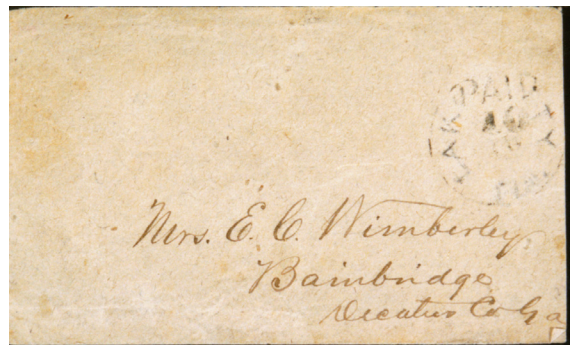 PAID
Mrs. E. C. Wimberley
Bainbridge
Decatur Co Ga